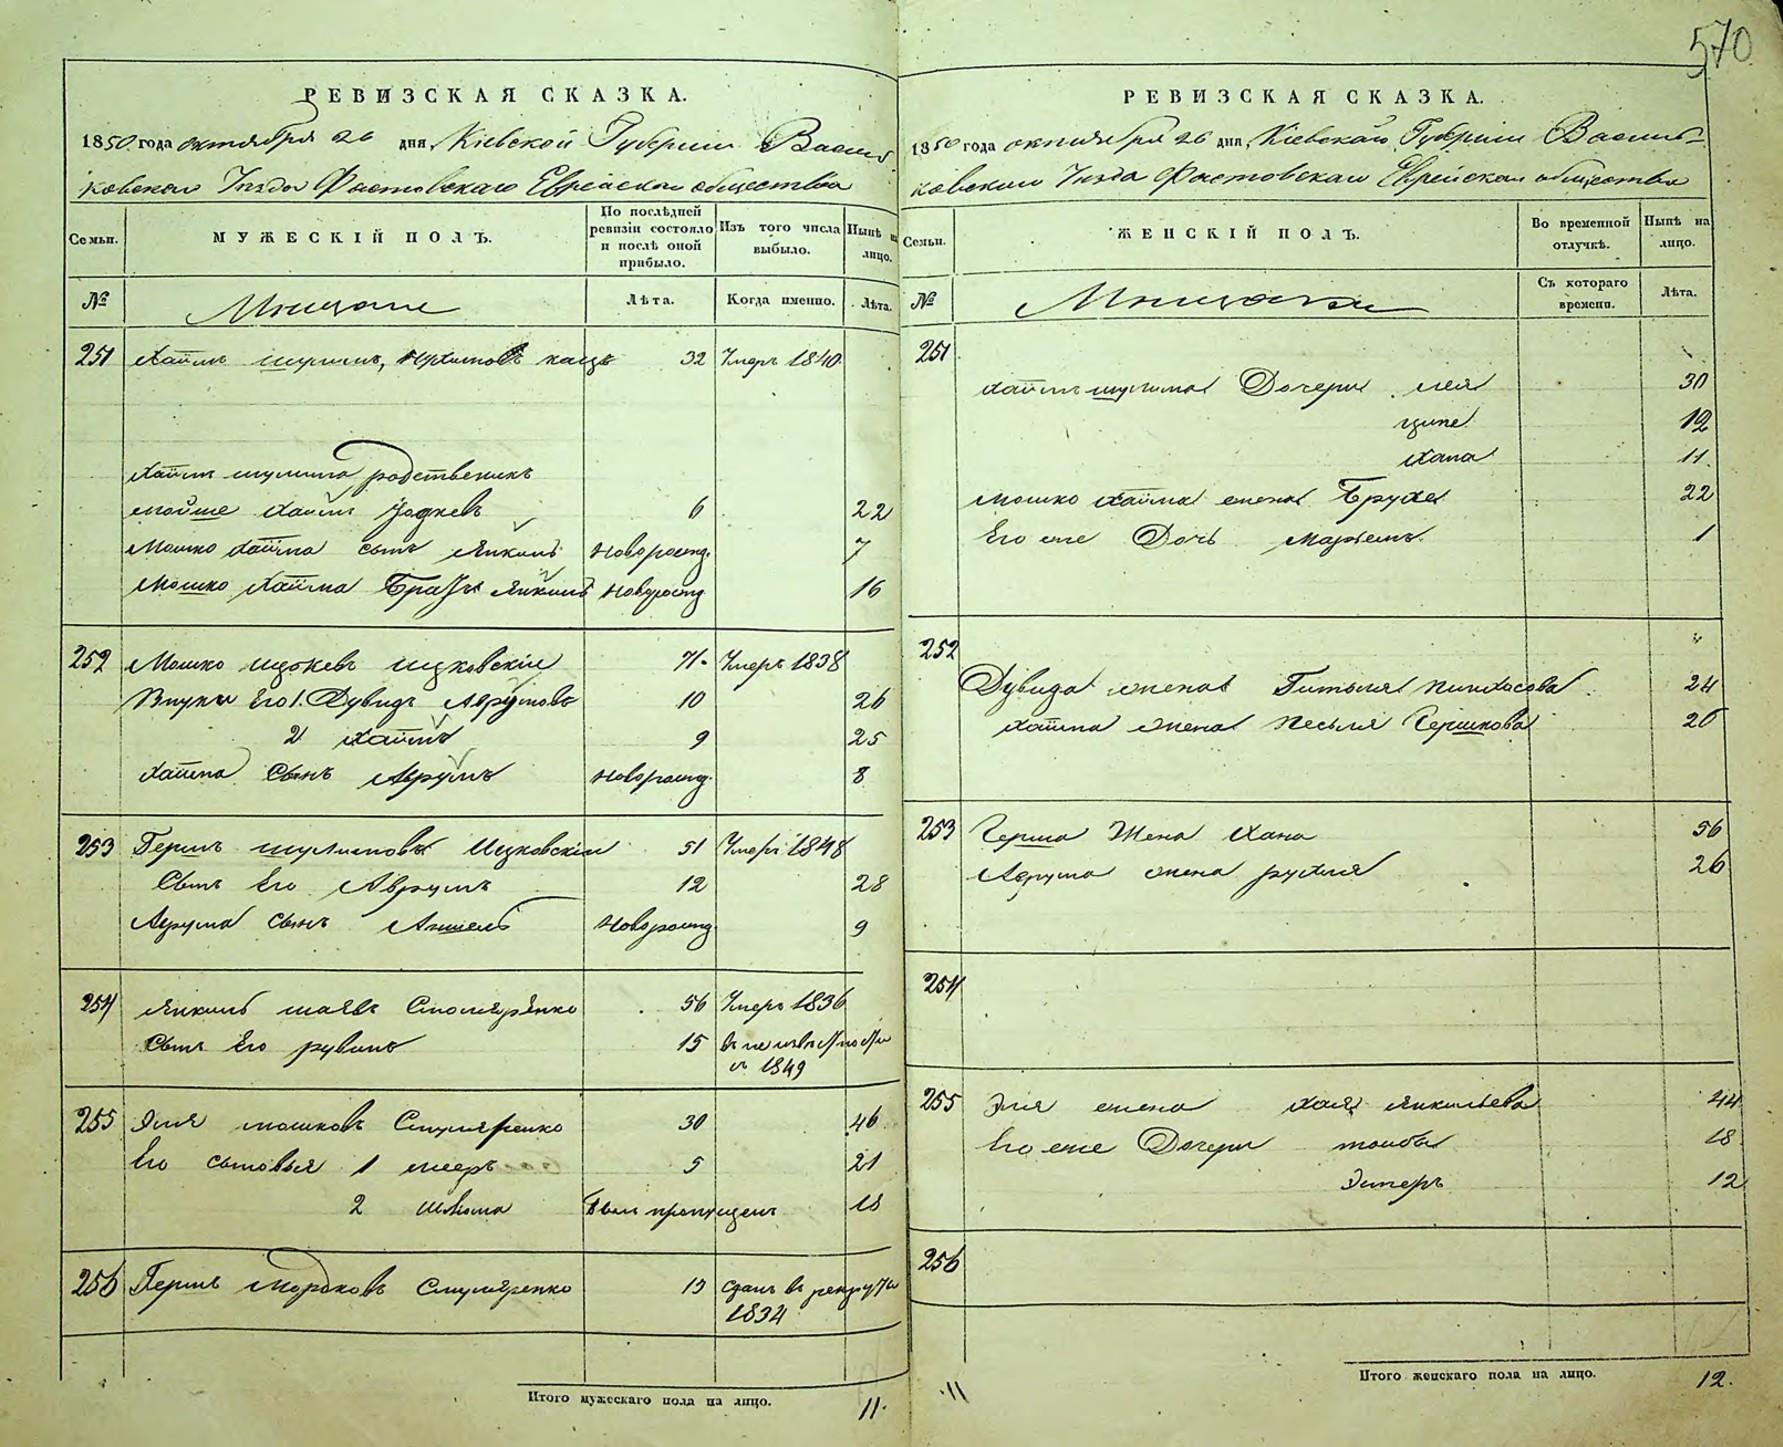 570
РЕВИЗСКАЯ СКАЗКА.
1850 года октября 26 дня, Кіевской Губерніи Василь
ковскаго Уезда Фастовскаго Еврейскаго общества
Семьи.
МУЖЕСКІЙ ПОЛЪ.
По послѣдней ревизіи состояло и послѣ оной прибыло.
Изъ того числа выбыло.
Нынѣ на лицо.
№
Мѣщане
Лѣта.
Когда именно.
Лѣта.
251 Хаимъ шулимъ, кацъ 32 Умеръ 1840
Хаимъ шулима родственикъ
мойше Хаимъ 6 22
Мошко Хаима сынъ Янкель новорожд. 7
Мошко Хаима Братъ Янкель новорожд 16
252 Мошко ицковъ ицковскій 71. Умеръ 1838
Внуки Его 1. Дувидъ Аврумовъ 10 26
2 Хаимъ 9 25
Хаима Сынъ Аврумъ новорожд. 8
253 Гершъ шулимовъ Ицковскій 51 Умеръ 1848
Сынъ Его Аврумъ 12 28
Аврума сынъ Аншель новорожд 9
254 Янкель шаевъ Столяренко 56 Умеръ 1836
Сынъ Его рувинъ 15 въ неизвѣстности
съ 1849
255 Эля мошковъ Смуляренко 30 46
Его сыновья 1 мееръ 5 21
2 шлиома былъ пропущенъ 18
256 Гершъ Мордковъ Смуляренко 13 сданъ въ рекруты
1834
Итого мужескаго пола на лицо. 11.
РЕВИЗСКАЯ СКАЗКА.
1850 года октября 26 дня, Кіевской Губерніи Василь-
ковскаго Уезда Фастовскаго Еврейскаго общества
Семьи.
ЖЕНСКІЙ ПОЛЪ.
Во временной отлучкѣ.
Нынѣ на лицо.
№
Мѣщане
Съ котораго времени.
Лѣта.
251
Хаимъ шулима Дочери лея 30
ципе 12
Хана 11.
Мошко Хаима жена Бруха 22
Его же Дочь Марьемъ 1
252 "
Дувида жена Гитля пинхасова 24
Хаима жена песьля Гершкова 26
253 Герша Жена Хана 56
Аврума жена рухля 26
254
255 Эля жена Хая Янкельева 44
Его же Дочери тоиба 18
Эстеръ 12
256
Итого женскаго пола на лицо. 12.
11